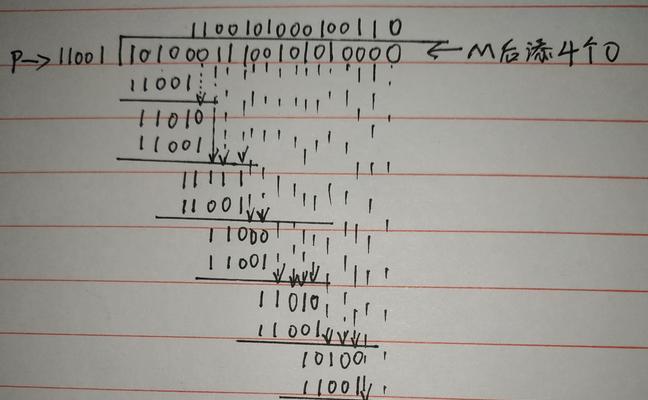 1100101000100110
P→ 11001 10100011100101010000 ← M后添4个0
11001
11010
11001
11111
11001
11000
11001
11010
11001
10100
11001